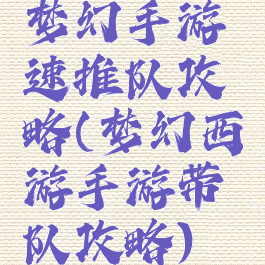 梦幻手游
速推队攻
略(梦幻西
游手游带
队攻略)